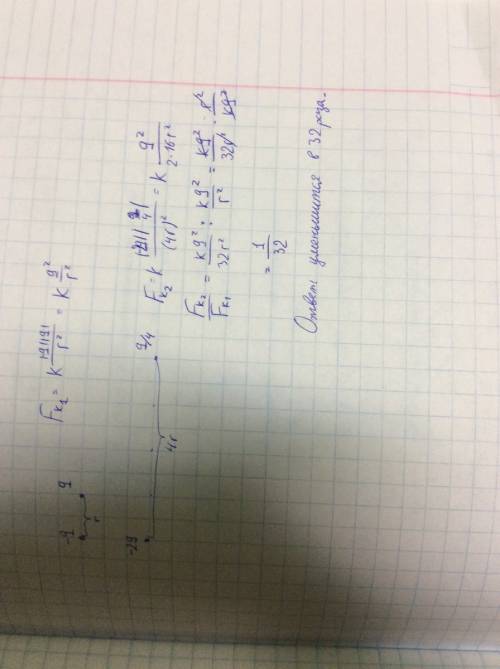 -q q
r
F_{k_1} = k \frac{|-q||q|}{r^2} = k \frac{q^2}{r^2}
-2q q/4
4r
F_{k_2} = k \frac{|-2q||\frac{q}{4}|}{(4r)^2} = k \frac{q^2}{2·16r^2}
\frac{F_{k_2}}{F_{k_1}} = \frac{kq^2}{32r^2} : \frac{kq^2}{r^2} = \frac{kq^2}{32r^2} · \frac{r^2}{kq^2}
= \frac{1}{32}
Ответ: уменьшится в 32 раза.